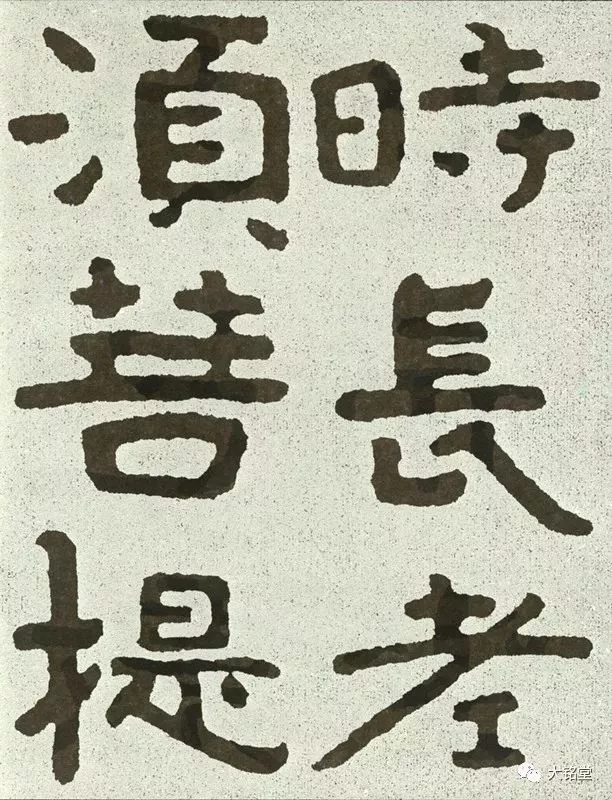 時長老
湏菩提
大铭堂